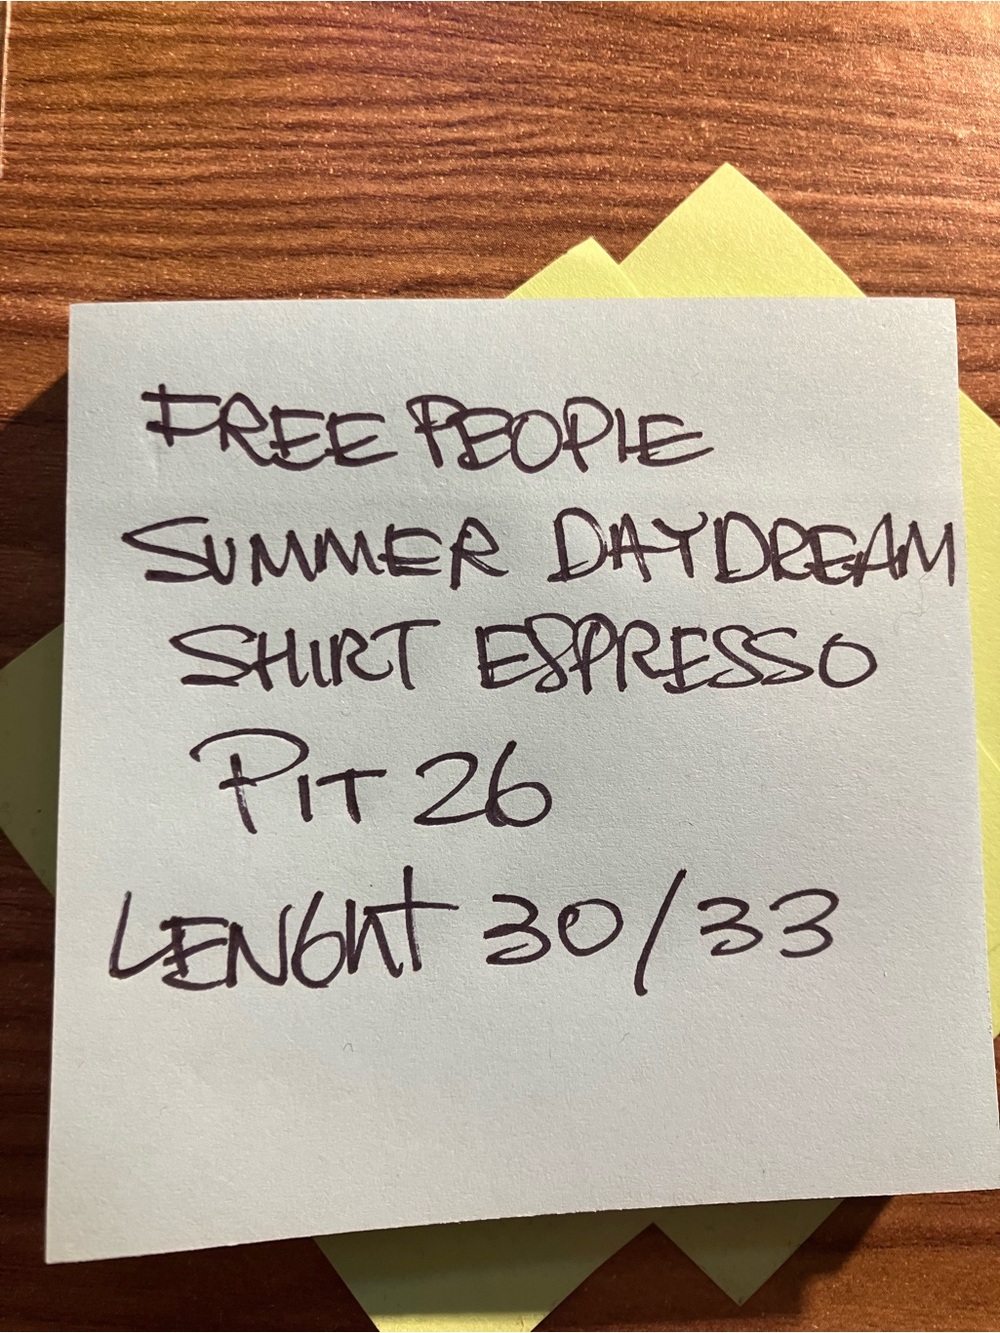 FREE PEOPLE
SUMMER DAYDREAM
SHIRT ESPRESSO
PIT 26
LENGHT 30/33